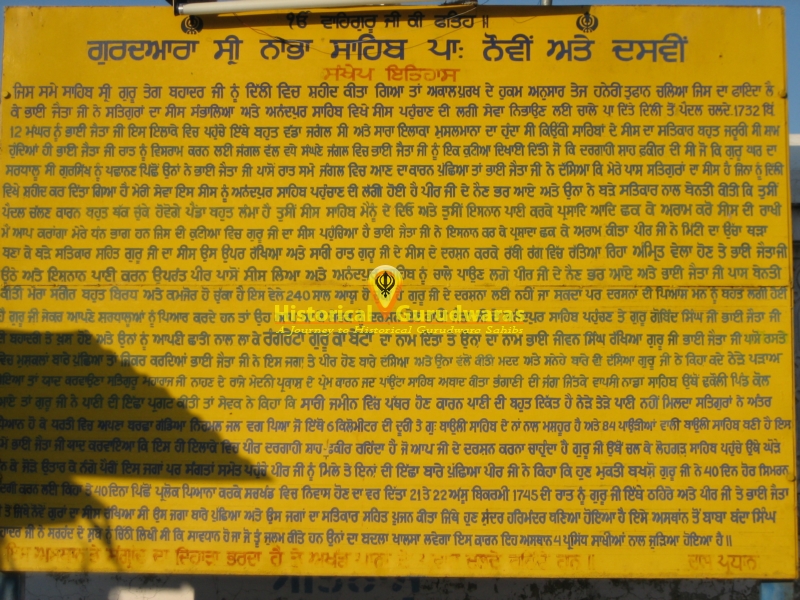 ੴ ਵਾਹਿਗੁਰੂ ਜੀ ਕੀ ਫਤਿਹ॥
ਗੁਰਦਆਰਾ ਸ੍ਰੀ ਨਾਭਾ ਸਾਹਿਬ ਪਾ: ਨੌਵੀਂ ਅਤੇ ਦਸਵੀਂ
ਸੰਖੇਪ ਇਤਿਹਾਸ
ਜਿਸ ਸਮੇ ਸਾਹਿਬ ਸ੍ਰੀ ਗੁਰੂ ਤੇਗ ਬਹਾਦਰ ਜੀ ਨੂੰ ਦਿੱਲੀ ਵਿਚ ਸ਼ਹੀਦ ਕੀਤਾ ਗਿਆ ਤਾਂ ਅਕਾਲਪੁਰਖ ਦੇ ਹੁਕਮ ਅਨੁਸਾਰ ਤੇਜ ਹਨੇਰੀ ਤੁਫਾਨ ਚਲਿਆ ਜਿਸ ਦਾ ਫਾਇਦਾ ਲੈ
ਕੇ ਭਾਈ ਜੈਤਾ ਜੀ ਨੇ ਸਤਿਗੁਰਾਂ ਦਾ ਸੀਸ ਸੰਭਾਲਿਆ ਅਤੇ ਅਨੰਦਪੁਰ ਸਾਹਿਬ ਵਿਖੇ ਸੀਸ ਪਹੁੰਚਾਣ ਦੀ ਲਗੀ ਸੇਵਾ ਨਿਭਾਉਣ ਲਈ ਚਾਲੇ ਪਾ ਦਿੱਤੇ ਦਿਲੀ ਤੋਂ ਪੈਦਲ ਚਲਦੇ 1732 ਬਿ
12 ਮੱਘਰ ਨੂੰ ਭਾਈ ਜੈਤਾ ਜੀ ਇਸ ਇਲਾਕੇ ਵਿਚ ਪਹੁੰਚੇ ਇਥੇ ਬਹੁਤ ਵੱਡਾ ਜੰਗਲ ਸੀ ਅਤੇ ਸਾਰਾ ਇਲਾਕਾ ਮੁਸਲਮਾਨਾ ਦਾ ਹੁੰਦਾ ਸੀ ਕਿਉਂਕੀ ਸਾਹਿਬਾਂ ਦੇ ਸੀਸ ਦਾ ਸਤਿਕਾਰ ਬਹੁਤ ਜਰੂਰੀ ਸੀ ਸਮ
ਹੁੰਦਿਆਂ ਹੀ ਭਾਈ ਜੈਤਾ ਜੀ ਰਾਤ ਨੂੰ ਵਿਸਰਾਮ ਕਰਨ ਲਈ ਜੰਗਲ ਵੱਲ ਵਧੇ ਸੰਘਣੇ ਜੰਗਲ ਵਿਚ ਭਾਈ ਜੈਤਾ ਜੀ ਨੂੰ ਇਕ ਕੁਟੀਆ ਦਿਖਾਈ ਦਿੱਤੀ ਜੋ ਕਿ ਦਰਗਾਹੀ ਸ਼ਾਹ ਫ਼ਕੀਰ ਦੀ ਸੀ ਜੋ ਕਿ ਗੁਰੂ ਘਰ ਦਾ
ਸਰਧਾਲੂ ਸੀ ਗੁਰਸਿੱਖ ਨੂੰ ਪਛਾਨਣ ਪਿੱਛੋਂ ਉਨਾਂ ਨੇ ਭਾਈ ਜੈਤਾ ਜੀ ਪਾਸੋਂ ਰਾਤ ਸਮੇ ਜੰਗਲ ਵਿਚ ਆਣ ਦਾ ਕਾਰਨ ਪੁੱਛਿਆ ਤਾਂ ਭਾਈ ਜੈਤਾ ਜੀ ਨੇ ਦੱਸਿਆ ਕਿ ਮੇਰੇ ਪਾਸ ਸਤਿਗੁਰਾਂ ਦਾ ਸੀਸ ਹੈ ਜਿਨਾ ਨੂੰ ਦਿੱਲੀ
ਵਿਖੇ ਸ਼ਹੀਦ ਕਰ ਦਿੱਤਾ ਗਿਆ ਹੈ ਮੇਰੀ ਸੇਵਾ ਇਸ ਸੀਸ ਨੂੰ ਅਨੰਦਪੁਰ ਸਾਹਿਬ ਪਹੁੰਚਾਣ ਦੀ ਲੱਗੀ ਹੋਈ ਹੈ ਪੀਰ ਜੀ ਦੇ ਨੈਣ ਭਰ ਆਏ ਅਤੇ ਉਨਾ ਨੇ ਬੜੇ ਸਤਿਕਾਰ ਨਾਲ ਬੇਨਤੀ ਕੀਤੀ ਕਿ ਤੁਸੀਂ
ਪੈਦਲ ਚਲਣ ਕਾਰਨ ਬਹੁਤ ਥੱਕ ਚੁੱਕੇ ਹੋਵੋਗੇ ਪੈਂਡਾ ਬਹੁਤ ਲੰਮਾ ਹੈ ਤੁਸੀਂ ਸੀਸ ਸਾਹਿਬ ਮੈਨੂੰ ਦੇ ਦਿਓ ਅਤੇ ਤੁਸੀਂ ਇਸਨਾਨ ਪਾਣੀ ਕਰਕੇ ਪ੍ਰਸ਼ਾਦਿ ਆਦਿ ਛਕ ਕੇ ਅਰਾਮ ਕਰੋ ਸੀਸ ਦੀ ਰਾਖੀ
ਮੈਂ ਆਪ ਕਰਾਂਗਾ ਮੇਰੇ ਧੰਨ ਭਾਗ ਹਨ ਜਿਸ ਦੀ ਕੁਟਿਆ ਵਿਚ ਗੁਰੂ ਜੀ ਦਾ ਸੀਸ ਪਹੁੰਚਿਆ ਹੈ ਭਾਈ ਜੈਤਾ ਜੀ ਨੇ ਇਸਨਾਨ ਕਰ ਕੇ ਪ੍ਰਸ਼ਾਦਾ ਛਕ ਕੇ ਅਰਾਮ ਕੀਤਾ ਪੀਰ ਜੀ ਨੇ ਮਿਟੀ ਦਾ ਉਚਾ ਥੜਾ
ਬਣਾ ਕੇ ਬੜੇ ਸਤਿਕਾਰ ਸਹਿਤ ਗੁਰੂ ਜੀ ਦਾ ਸੀਸ ਉਸ ਉਪਰ ਰੱਖਿਆ ਅਤੇ ਸਾਰੀ ਰਾਤ ਗੁਰੂ ਜੀ ਦੇ ਸੀਸ ਦੇ ਦਰਸ਼ਨ ਕਰਕੇ ਰੱਬੀ ਰੰਗ ਵਿਚ ਰੱਤਿਆ ਰਿਹਾ ਅੰਮ੍ਰਿਤ ਵੇਲਾ ਹੋਣ ਤੇ ਭਾਈ ਜੈਤਾਜੀ
ਉਠੇ ਅਤੇ ਇਸ਼ਨਾਨ ਪਾਣੀ ਕਰਨ ਉਪਰੰਤ ਪੀਰ ਪਾਸੋਂ ਸੀਸ ਲਿਆ ਅਤੇ ਅਨੰਦਪੁਰ ਸਾਹਿਬ ਨੂੰ ਚਾਲੇ ਪਾਉਣ ਲਗੇ ਪੀਰ ਜੀ ਦੇ ਨੈਣ ਭਰ ਆਏ ਅਤੇ ਭਾਈ ਜੈਤਾ ਜੀ ਪਾਸ ਬੇਨਤੀ
ਕੀਤੀ ਮੇਰਾ ਸਰੀਰ ਬਹੁਤ ਬਿਰਧ ਅਤੇ ਕਮਜੋਰ ਹੋ ਚੁੱਕਾ ਹੈ ਇਸ ਵੇਲੇ 240 ਸਾਲ ਆਯੂ ਹੈ ਗੁਰੂ ਜੀ ਦੇ ਦਰਸ਼ਨਾ ਲਈ ਨਹੀਂ ਜਾ ਸਕਦਾ ਪਰ ਦਰਸ਼ਨਾਂ ਦੀ ਪਿਆਸ ਮਨ ਨੂੰ ਬਹੁਤ ਲਗੀ ਹੋਈ
ਹੈ ਗੁਰੂ ਜੀ ਜੇਕਰ ਆਪਣੇ ਸਰਧਾਲੂਆਂ ਨੂੰ ਪਿਆਰ ਕਰਦੇ ਹਨ ਤਾਂ ਉਹ ਸਾਹਿਬ ਪਹੁੰਚਣ ਤੇ ਗੁਰੂ ਗੋਬਿੰਦ ਸਿੰਘ ਜੀ ਭਾਈ ਜੈਤਾ ਜੀ
Historical Gurudwaras
A Journey to Historical Gurudwara Sahibs
ਦੀ ਬਹਾਦਰੀ ਤੇ ਖੁਸ਼ ਹੋਏ ਅਤੇ ਉਨਾਂ ਨੂੰ ਆਪਣੀ ਛਾਤੀ ਨਾਲ ਲਾ ਕੇ ਰੰਗਰੇਟਾ ਗੁਰੂ ਕਾ ਬੇਟਾ ਦਾ ਨਾਮ ਦਿੱਤਾ ਤੇ ਉਨਾਂ ਦਾ ਨਾਮ ਭਾਈ ਜੀਵਨ ਸਿੰਘ ਰੱਖਿਆ ਗੁਰੂ ਜੀ ਭਾਈ ਜੈਤਾ ਜੀ ਪਾਸੋਂ ਰਸਤੇ
ਵਿਚ ਮੁਸ਼ਕਲਾਂ ਬਾਰੇ ਪੁੱਛਿਆ ਤਾਂ ਜ਼ਿਕਰ ਕਰਦਿਆਂ ਭਾਈ ਜੈਤਾ ਜੀ ਨੇ ਇਸ ਜਗਾ ਤੇ ਪੀਰ ਹੋਣ ਬਾਰੇ ਦੱਸਿਆ ਅਤੇ ਉਨਾ ਵੱਲੋਂ ਕੀਤੀ ਮਦਦ ਅਤੇ ਸਨੇਹੇ ਬਾਰੇ ਵੀ ਦੱਸਿਆ ਗੁਰੂ ਜੀ ਨੇ ਕਿਹਾ ਕਦੇ ਨੇੜੇ ਪੜਾਅ
ਹੋਇਆ ਤਾਂ ਯਾਦ ਕਰਵਾਉਣਾ ਸਤਿਗੁਰੂ ਮਹਾਰਾਜ ਜੀ ਨਾਹਣ ਦੇ ਰਾਜੇ ਮੇਦਨੀ ਪ੍ਰਕਾਸ਼ ਦੇ ਪ੍ਰੇਮ ਕਾਰਨ ਜਦ ਪਾਉਂਟਾ ਸਾਹਿਬ ਅਬਾਦ ਕੀਤਾ ਭੰਗਾਣੀ ਦੀ ਜੰਗ ਜਿੱਤਕੇ ਵਾਪਸੀ ਨਾਡਾ ਸਾਹਿਬ ਉਥੋਂ ਢਕੌਲੀ ਪਿੰਡ ਕੋਲ
ਆਏ ਤਾਂ ਗੁਰੂ ਜੀ ਨੇ ਪਾਣੀ ਦੀ ਇੱਛਾ ਪ੍ਰਗਟ ਕੀਤੀ ਤਾਂ ਸੇਵਕਾਂ ਨੇ ਕਿਹਾ ਕਿ ਸਾਰੀ ਜਮੀਨ ਵਿੱਚ ਪੱਥਰ ਹੋਣ ਕਾਰਨ ਪਾਣੀ ਦੀ ਬਹੁਤ ਦਿੱਕਤ ਹੈ ਨੇੜੇ ਤੇੜੇ ਪਾਣੀ ਨਹੀਂ ਮਿਲਦਾ ਸਤਿਗੁਰਾਂ ਨੇ ਅੰਤਰ
ਧਿਆਨ ਹੋ ਕੇ ਧਰਤੀ ਵਿਚ ਆਪਣਾ ਬਰਛਾ ਗੱਡਿਆ ਨਿਰਮਲ ਜਲ ਵਗ ਪਿਆ ਜੋ ਇਥੋਂ 6 ਕਿਲੋਮੀਟਰ ਦੀ ਦੂਰੀ ਤੇ ਗੁ: ਬਾਉਲੀ ਸਾਹਿਬ ਦੇ ਨਾਂ ਨਾਲ ਮਸ਼ਹੂਰ ਹੈ ਅਤੇ 84 ਪਾਉੜੀਆਂ ਵਾਲੀ ਬਾਉਲੀ ਸਾਹਿਬ ਬਣੀ ਹੈ ਇਸ
ਸਮੇਂ ਭਾਈ ਜੈਤਾ ਜੀ ਯਾਦ ਕਰਵਾਇਆ ਕਿ ਇਸ ਹੀ ਇਲਾਕੇ ਵਿਚ ਪੀਰ ਦਰਗਾਹੀ ਸ਼ਾਹ ਫ਼ਕੀਰ ਰਹਿੰਦਾ ਹੈ ਜੋ ਆਪ ਜੀ ਦੇ ਦਰਸ਼ਨ ਕਰਨਾ ਚਾਹੁੰਦਾ ਹੈ ਗੁਰੂ ਜੀ ਉਥੋਂ ਚਲ ਕੇ ਲੋਹਗੜ੍ਹ ਸਾਹਿਬ ਪਹੁੰਚੇ ਉਥੇ ਘੋੜੇ
ਤੇ ਜੋੜੇ ਉਤਾਰ ਕੇ ਨੰਗੇ ਪੈਰੀਂ ਇਸ ਜਗਾਂ ਪਰ ਸੰਗਤਾਂ ਸਮੇਤ ਪਹੁੰਚੇ ਪੀਰ ਜੀ ਨੂੰ ਮਿਲੇ ਤੇ ਇਨਾਂ ਦੀ ਇੱਛਾ ਬਾਰੇ ਪੁੱਛਿਆ ਪੀਰ ਜੀ ਨੇ ਕਿਹਾ ਕਿ ਹੁਣ ਮੁਕਤੀ ਬਖਸ਼ੋ ਗੁਰੂ ਜੀ ਨੇ 40 ਦਿਨ ਹੋਰ ਸਿਮਰਨ
ਕਰਨ ਲਈ ਕਿਹਾ ਤੇ 40 ਦਿਨਾ ਪਿੱਛੋਂ ਪ੍ਰਲੋਕ ਪਿਆਨਾ ਕਰਕੇ ਸਰਖੰਡ ਵਿਚ ਨਿਵਾਸ ਹੋਣ ਦਾ ਵਰ ਦਿੱਤਾ 21 ਤੇ 22 ਅੱਸੂ ਬਿਕਰਮੀ 1745 ਦੀ ਰਾਤ ਨੂੰ ਗੁਰੂ ਜੀ ਇੱਥੇ ਠਹਿਰੇ ਅਤੇ ਪੀਰ ਜੀ ਤੇ ਭਾਈ ਜੈਤਾ
ਤੇ ਜਿਥੇ ਨੌਵੇਂ ਗੁਰਾਂ ਦਾ ਸੀਸ ਰੱਖਿਆ ਸੀ ਉਸ ਜਗਾ ਬਾਰੇ ਪੁੱਛਿਆ ਅਤੇ ਉਸ ਜਗਾਂ ਦਾ ਸਤਿਕਾਰ ਸਹਿਤ ਪੂਜਨ ਕੀਤਾ ਜਿੱਥੇ ਹੁਣ ਸੁੰਦਰ ਹਰਿਮੰਦਰ ਬਣਿਆ ਹੋਇਆ ਹੈ ਇਸੇ ਅਸਥਾਨ ਤੋਂ ਬਾਬਾ ਬੰਦਾ ਸਿੰਘ
ਬਹਾਦਰ ਜੀ ਨੇ ਸਰਹੰਦ ਦੇ ਸੂਬੇ ਨੂੰ ਚਿੱਠੀ ਲਿਖੀ ਸੀ ਕਿ ਸਾਵਧਾਨ ਹੋ ਜਾ ਜੋ ਤੂੰ ਜੁਲਮ ਕੀਤੇ ਹਨ ਉਨਾਂ ਦਾ ਬਦਲਾ ਖਾਲਸਾ ਲਵੇਗਾ ਇਸ ਕਾਰਨ ਇਹ ਅਸਥਾਨ 4 ਪ੍ਰਸਿੱਧ ਸਾਖੀਆਂ ਨਾਲ ਜੁੜਿਆ ਹੋਇਆ ਹੈ॥